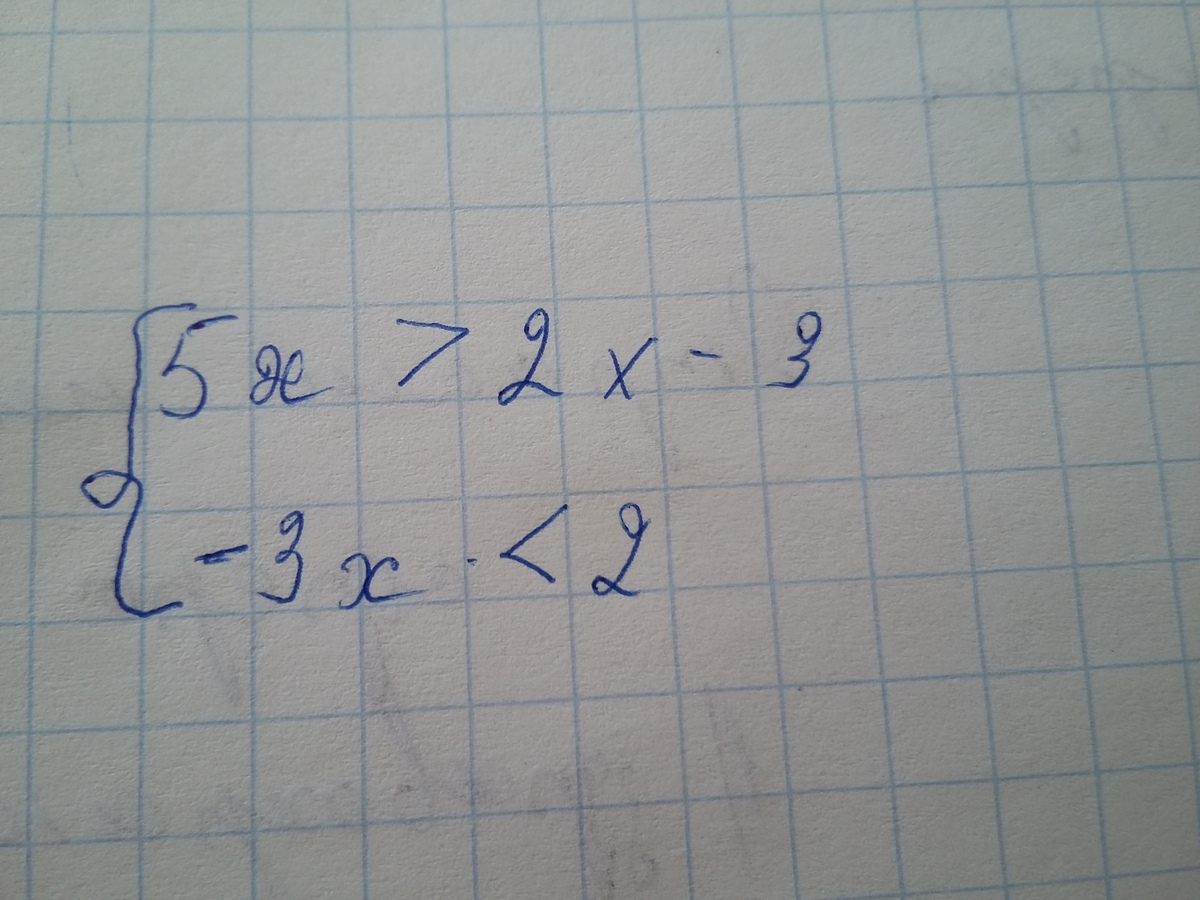 5x > 2x - 3
-3x < 2